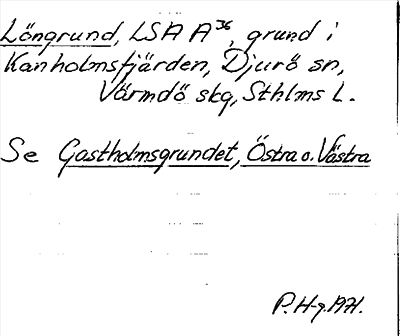 Löngrund, LSA A³⁶, grund i
Kanholmsfjärden, Djurö sn,
Värmdö skg, Sthlms L.
Se Gastholmsgrundet, Östra o. Västra
P. H-g. 1971.